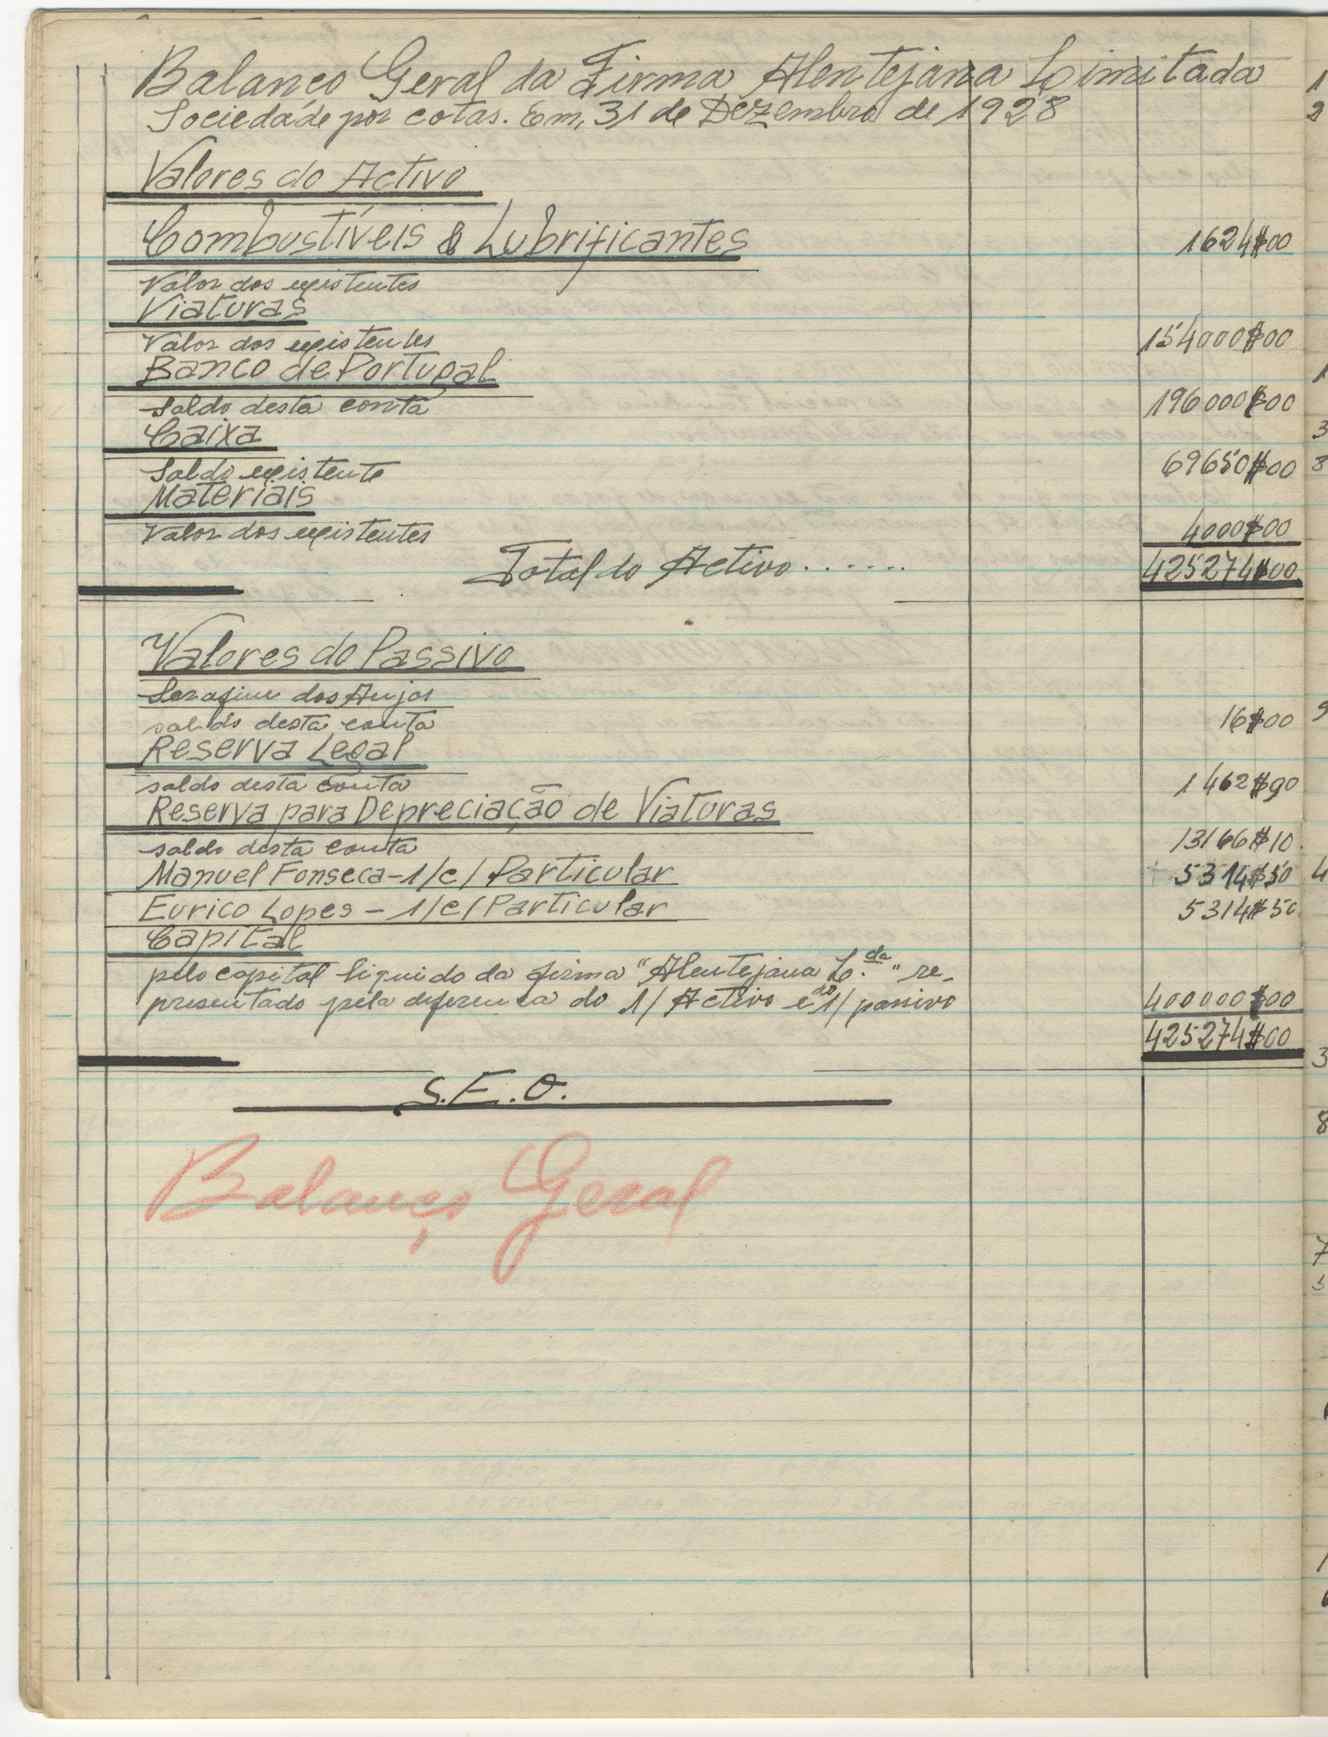 Balanço Geral da Firma Alentejana Limitada
Sociedade por cotas. Em, 31 de Dezembro de 1928
Valores do Activo
Combustíveis & Lubrificantes 1624$00
Valor dos existentes
Viaturas
Valor dos existentes 154000$00
Banco de Portugal
Saldo desta conta 196000$00
Caixa
Saldo existente 69650$00
Materiais
Valor dos existentes 4000$00
Total do Activo....... 425274$00
Valores do Passivo
Serafim dos Anjos
saldo desta conta 16$00
Reserva Legal
saldo desta conta 1462$90
Reserva para Depreciação de Viaturas
saldo desta conta 13166$10
Manuel Fonseca - 1/c/ Particular 5314$50
Eurico Lopes - 1/c/ Particular 5314$50
Capital
pelo capital liquido da firma "Alentejana L.da" re-
presentado pela diferença do 1/ Activo e do 1/ passivo 400000$00
425274$00
S.E.O.
Balanço Geral